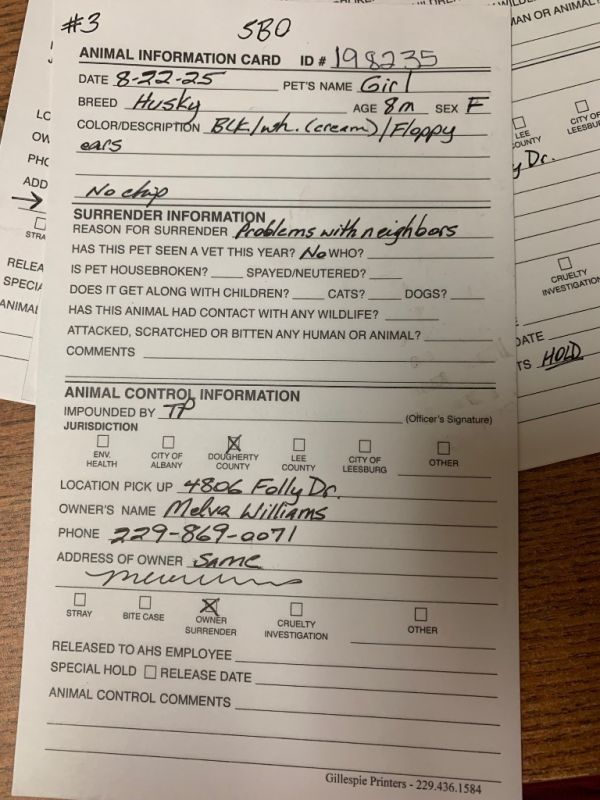 #3 SBO
ANIMAL INFORMATION CARD ID # 198235
DATE 8-22-25 PET'S NAME Girl
BREED Husky AGE 8m SEX F
COLOR/DESCRIPTION BLK/wh. (cream)/Floppy
ears
No chip
SURRENDER INFORMATION
REASON FOR SURRENDER Problems with neighbors
HAS THIS PET SEEN A VET THIS YEAR? No WHO?
IS PET HOUSEBROKEN? SPAYED/NEUTERED?
DOES IT GET ALONG WITH CHILDREN? CATS? DOGS?
HAS THIS ANIMAL HAD CONTACT WITH ANY WILDLIFE?
ATTACKED, SCRATCHED OR BITTEN ANY HUMAN OR ANIMAL?
COMMENTS
ANIMAL CONTROL INFORMATION
IMPOUNDED BY TP (Officer's Signature)
JURISDICTION
ENV. HEALTH CITY OF ALBANY DOUGHERTY COUNTY LEE COUNTY CITY OF LEESBURG OTHER
LOCATION PICK UP 4806 Folly Dr.
OWNER'S NAME Melva Williams
PHONE 229-869-0071
ADDRESS OF OWNER Same
STRAY BITE CASE OWNER SURRENDER CRUELTY INVESTIGATION OTHER
RELEASED TO AHS EMPLOYEE
SPECIAL HOLD RELEASE DATE
ANIMAL CONTROL COMMENTS
Gillespie Printers - 229.436.1584
MAN OR ANIMAL
LEE COUNTY CITY OF LEESBU
y Dr.
CRUELTY INVESTIGATION
DATE
TS HOLD
LO
OW
PHO
ADD
STRA
RELEA
SPECIA
ANIMAL